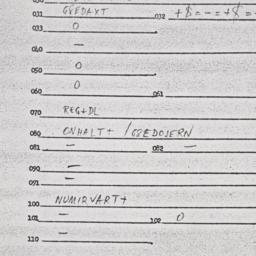 030
031 GØEDAXT 032 +$=-=+X=
033 0
040 -
050 0
060 0 061
070 REG+DL
080 ONHALT+ /GØEDOJERN
081 - 082 -
090 -
091 -
100 NUMIRVART+
101 - 102 0
110 -